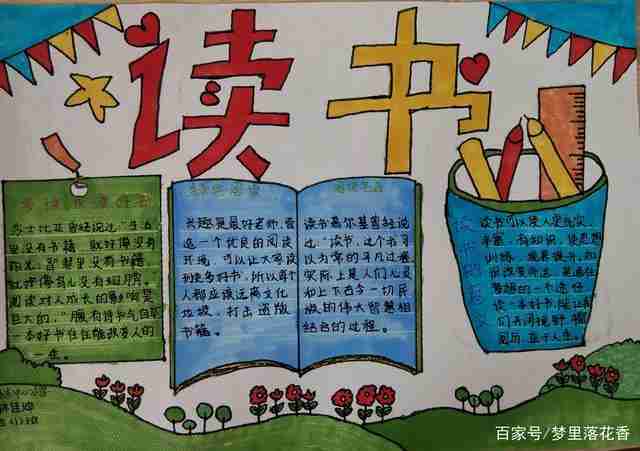 读书
莎士比亚曾经说过:“生活
里没有书籍,就好像没有
阳光;智慧里没有书籍,
就好像鸟儿没有翅膀。
阅读对人成长的影响是
巨大的,”腹有诗书气自华
一本好书往往能改变人的
一生。
兴趣是最好老师,营
造一个优良的阅读
环境,可以让大家读
到更多好书,所以每个
人都应该远离文化
垃圾,打击盗版
书籍。
读书高尔基曾经说
过:“读书,这个我习
以为常的平凡过程,
实际上是人们心灵
和上下古今一切民
族的伟大智慧相
结合的过程。
读书可以使人更充实,
一个途径。
读一本好书,能让我
们开阔视野
百家号/梦里落花香